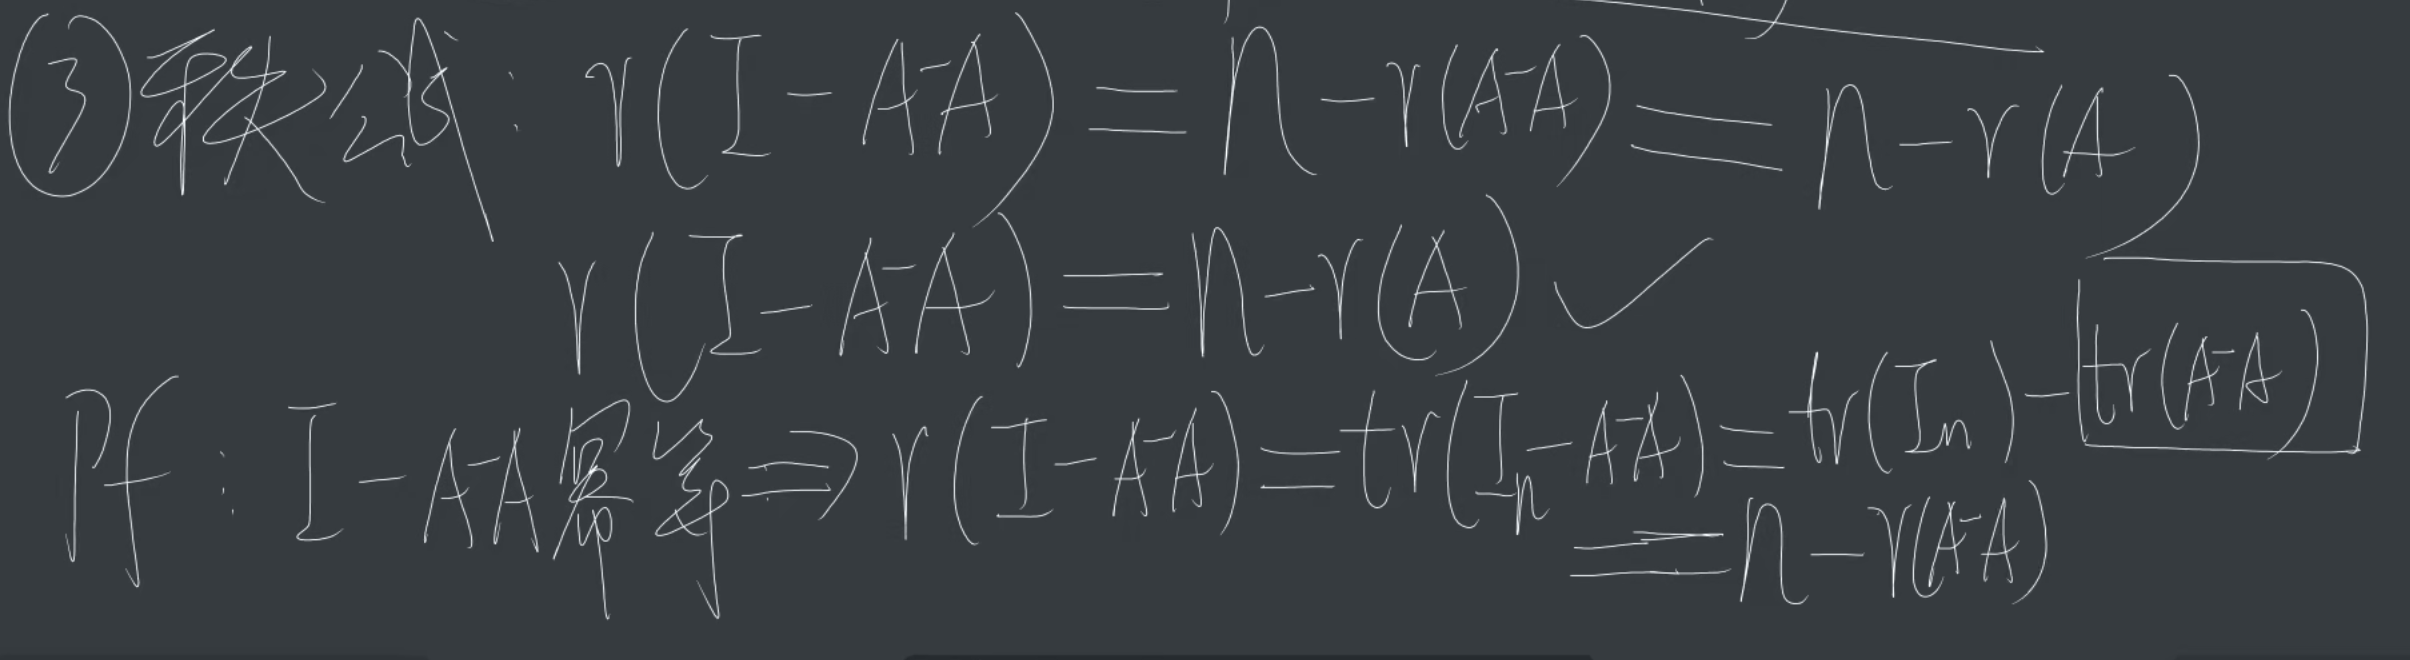 ③秩公式: r(I-A⁻A)=n-r(A⁻A)=n-r(A)
r(I-A⁻A)=n-r(A) ✓
Pf: I-A⁻A幂等⇒r(I-A⁻A)=tr(Iₙ-A⁻A)=tr(Iₙ)-tr(A⁻A)
=n-r(A⁻A)